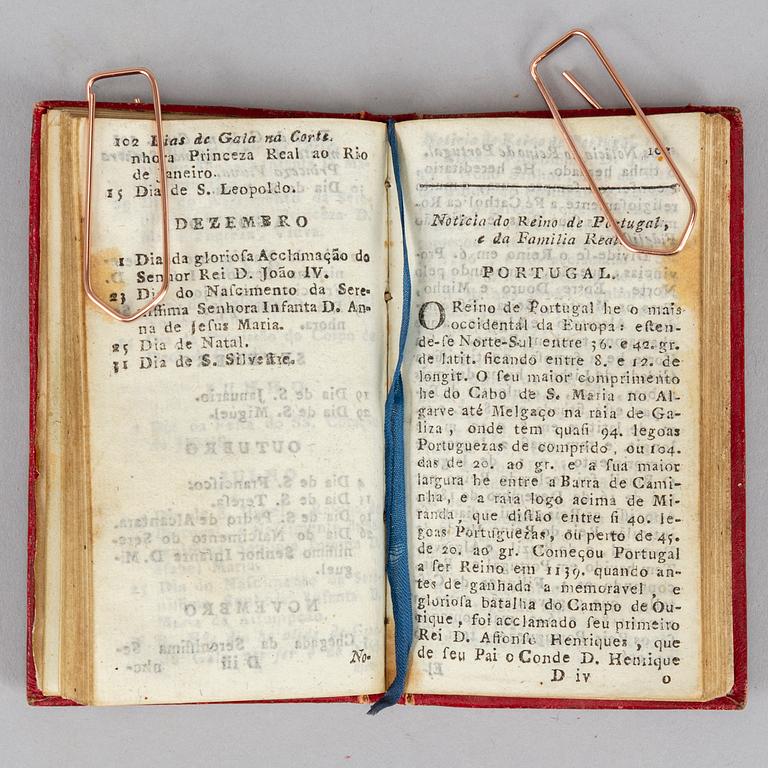 102 Dias de Gala na Corte.
nhora Princeza Real ao Rio
de Janeiro.
15 Dia de S. Leopoldo.
DEZEMBRO
1 Dia da gloriosa Acclamação do
Senhor Rei D. João IV.
23 Dia do Nascimento da Sere-
nissima Senhora Infanta D. An-
na de Jesus Maria.
25 Dia de Natal.
31 Dia de S. Silvestre.
D iii
No-
Noticia do Reino de Portugal,
e da Familia Real
PORTUGAL.
O Reino de Portugal he o mais
occidental da Europa: esten-
de-se Norte-Sul entre 36. e 42. gr.
de latit. ficando entre 8. e 12. de
longit. O seu maior comprimento
he do Cabo de S. Maria no Al-
garve até Melgaço na raia de Ga-
liza, onde tem quasi 94. legoas
Portuguezas de comprido, ou 104.
das de 20. ao gr. e a sua maior
largura he entre a Barra de Cami-
nha, e a raia logo acima de Mi-
randa, que distão entre si 40. le-
goas Portuguezas, ou perto de 45.
de 20. ao gr. Começou Portugal
a ser Reino em 1139. quando an-
tes de ganhada a memoravel, e
gloriosa batalha do Campo de Ou-
rique, foi acclamado seu primeiro
Rei D. Affonso Henriques, que
de seu Pai o Conde D. Henrique
D iv
o